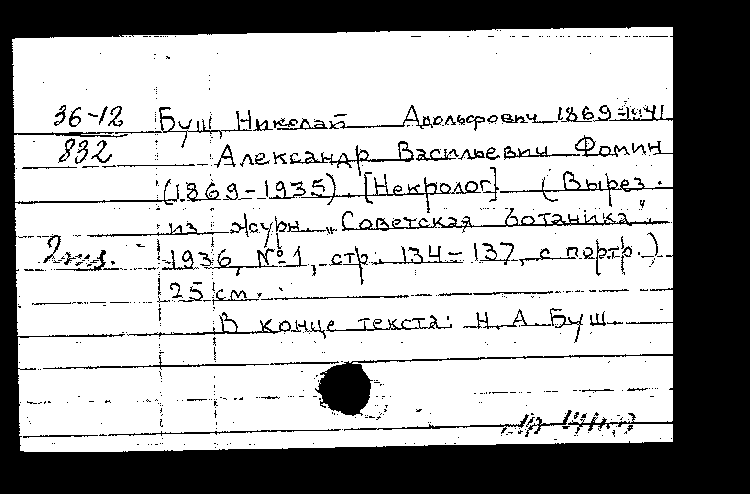 36-12 Буш, Николай Адольфович 1869-1941
832 Александр Васильевич Фомин
(1869-1935). [Некролог] (Вырез.
из журн. „Советская ботаника".
2 экз. 1936, №1, стр. 134-137, с портр.)
25 см.
В конце текста: Н. А. Буш.